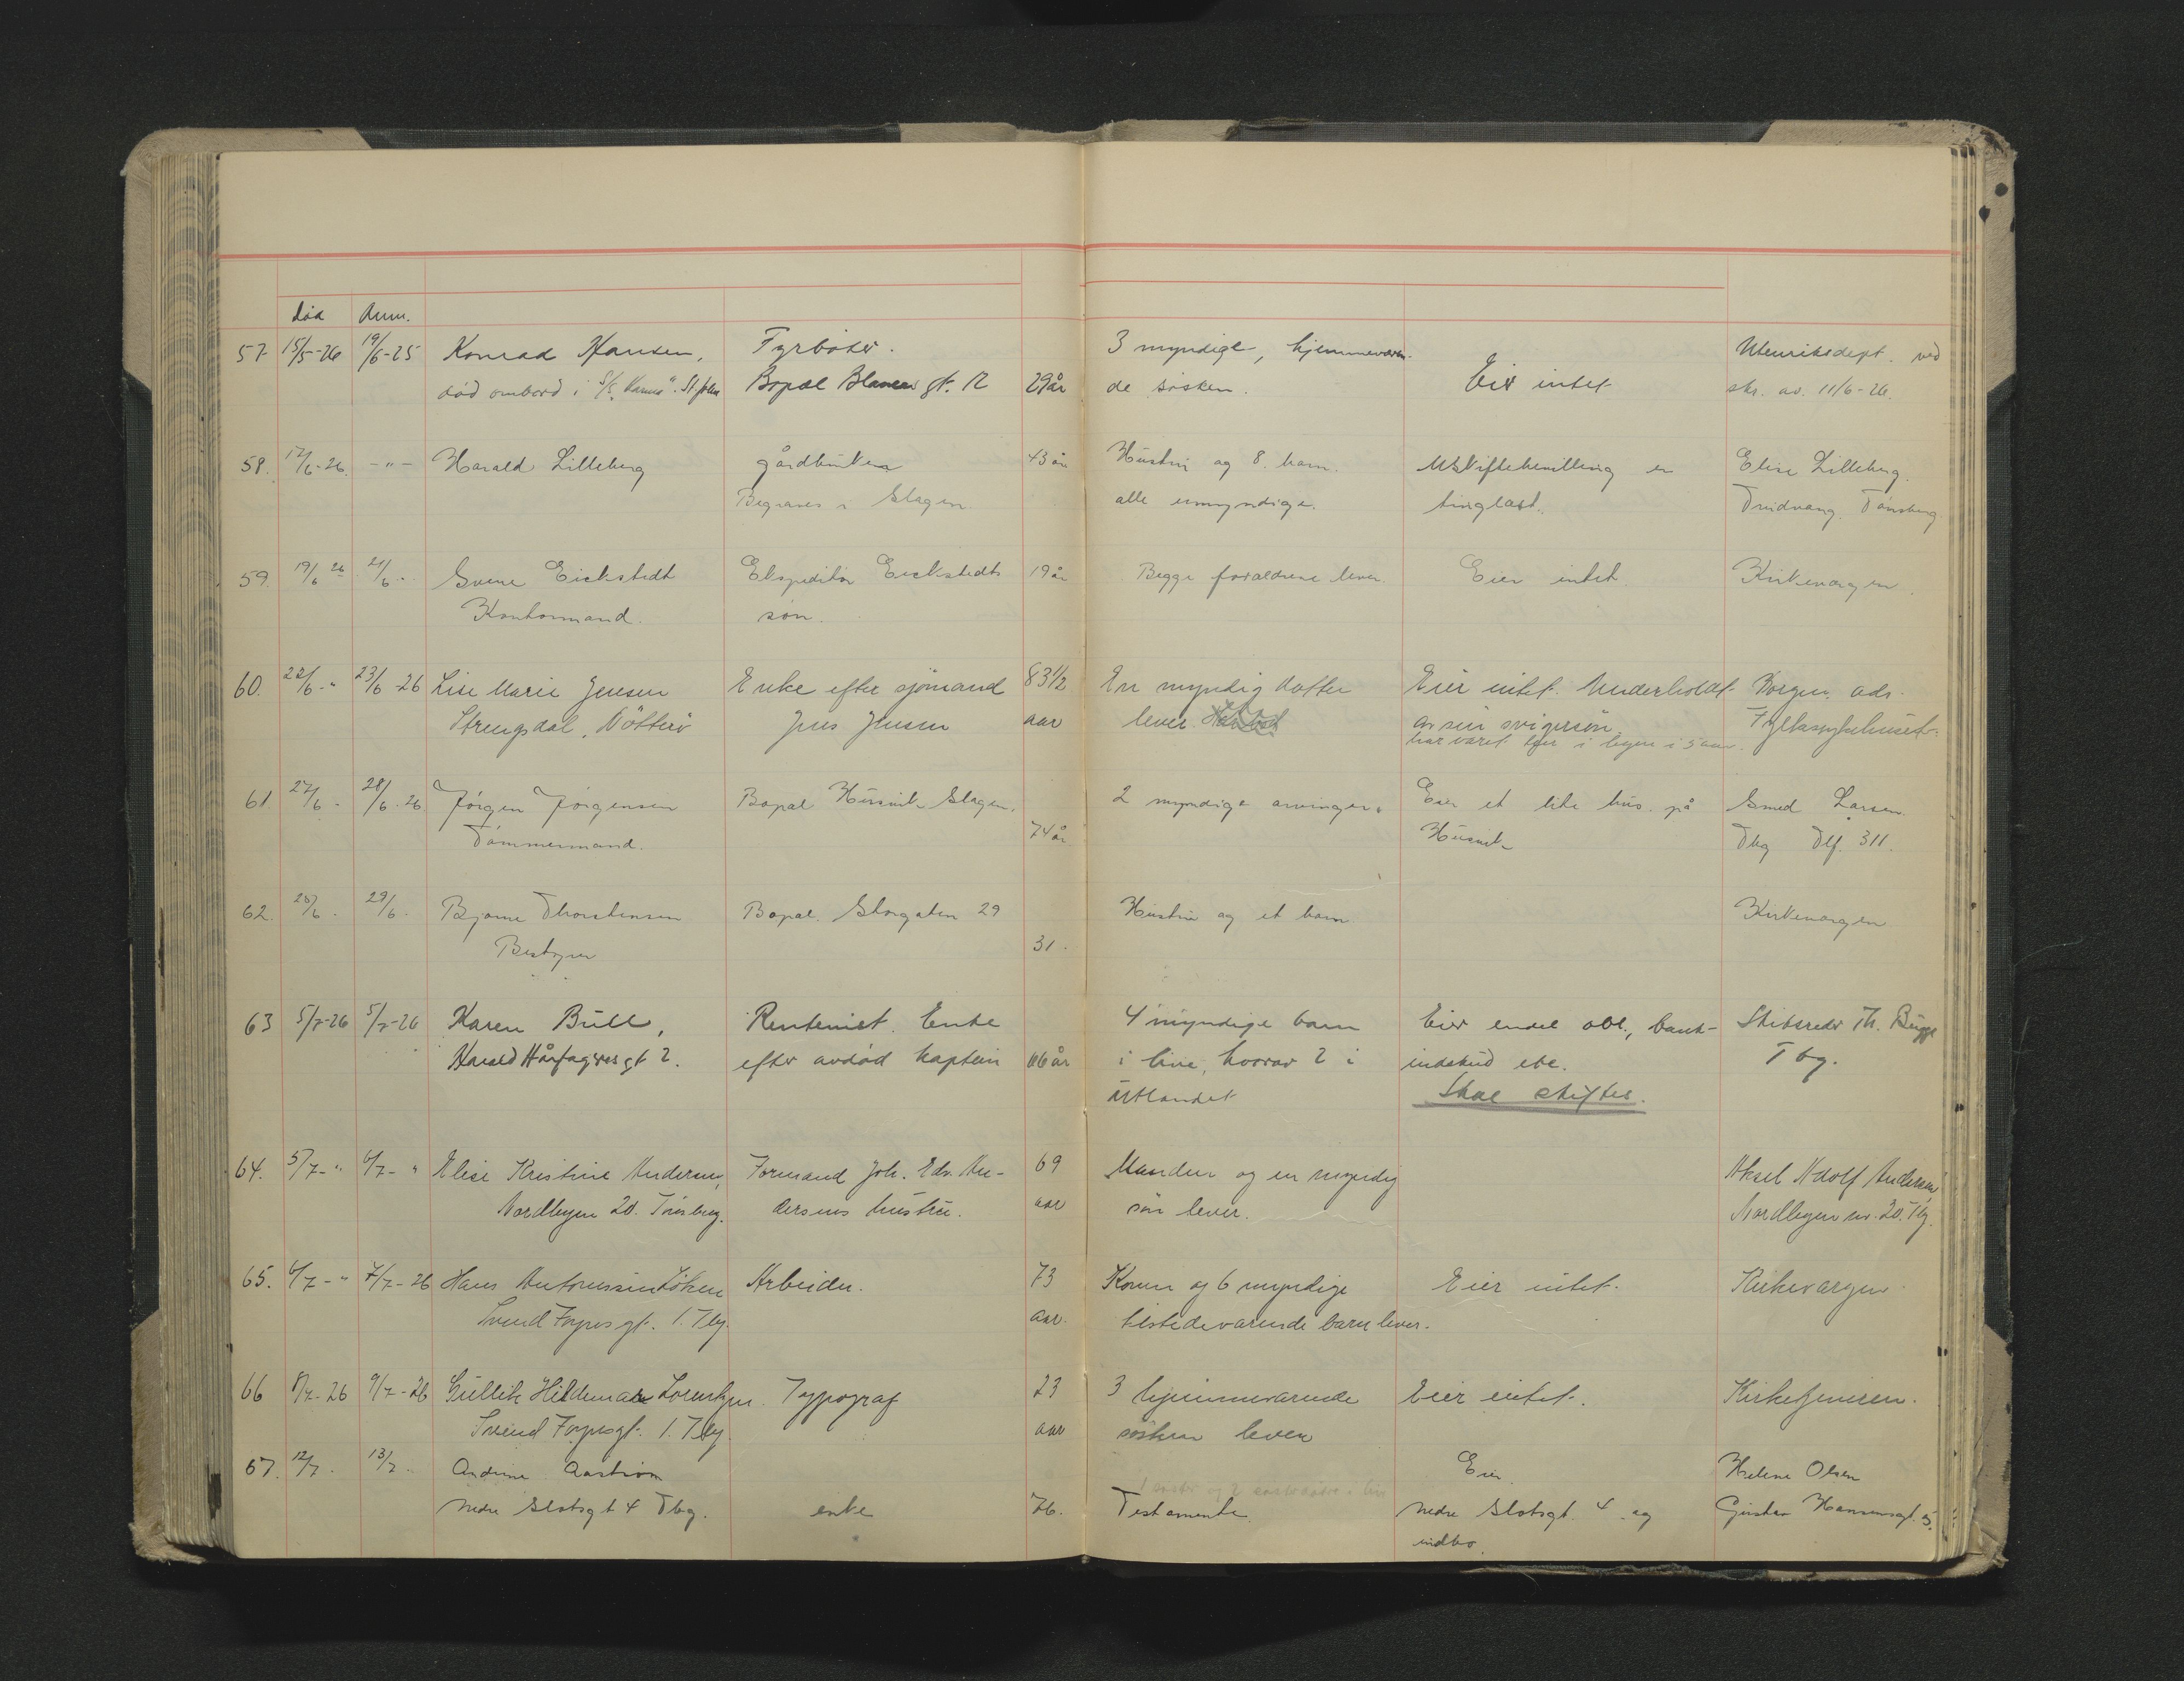 død Anm.
57 15/5-26 19/6-25 Konrad Hansen, Fyrbøter. 3 myndige, hjemmeværen- Utenriksdept. ved
død ombord i S/S Bopæl gt. 12 29 år de søsken. Eier intet skr. av. 11/6-26.
58. 17/6-26. -"- Harald Lilleberg gårdbruker 43 år Hustru og 8. barn. Uskiftebevilling er Elise Lilleberg.
Begraves i Slagen. alle umyndige. tinglæst. Tønsberg.
59. 19/6 26 21/6 - Sverre Eickstedt Ekspeditør Eickstedts 19 år Begge forældrene lever. Eier intet. Kirkevergen.
Kontormand. søn.
60. 22/6 - " 23/6-26 Lise Marie Jensen Enke efter sjømand 83 1/2 En myndig datter Eier intet. Underholdt Borgen. ads.
Strengsdal, Nøtterø Jens Jensen aar lever. av sin svigersøn. Fylkessykehuset.
har været her i byen i 5 aar.
61 27/6 - 28/6-26 Jørgen Jørgensen Bopæl Husvik Slagen. 2 myndige arvinger. Eier et lite hus på Smed Larsen.
Tømmermand. 74 år Husvik Tbg Tlf. 311.
62. 28/6 - 29/6 - Bjarne Thorstensen Bopæl. Storgaten 29 Hustru og et barn Kirkevergen
Bestyrer 31.
63 5/7-26 5/7-26 Karen Bull, Rentenist. Enke 4 myndige barn Eier endel obl., bank- Skibsreder Th. Bugge
Harald Hårfagres gt 2. efter avdød kaptein 66 år i live, hvorav 2 i indskud etc. Tbg.
utlandet Skal skiftes.
64. 5/7 - " 6/7 - " Elise Kristine Andersen, Formand Joh. Edv. An- 69 Manden og en myndig Aksel Adolf Andersen
Nordbyen 20. Tønsberg. dersens hustru. aar søn lever. Nordbyen nr. 20. Tbg.
65. 6/7 - " 7/7-26 Hans Antonissen Løken Arbeider. 73 Konen og 6 myndige Eier intet. Kirkevergen
Svend Foynsgt. 1. Tbg. aar. tilstedeværende barn lever.
66 8/7-26 9/7-26 Gullik Hildemar Lorentzen. Typograf 23 3 hjemmeværende Eier intet. Kirketjeneren.
Svend Foynsgt. 1. Tbg. aar søsken lever
67. 12/7. 13/7. Andrine Aastrøm Eier. Helene Olsen
1 søster og 2 i live
Nedre Slotsgt 4 Tbg. enke 76. Testamente. Nedre Slotsgt. 4 og Gunnar Hansensgt. 5.
indbo.